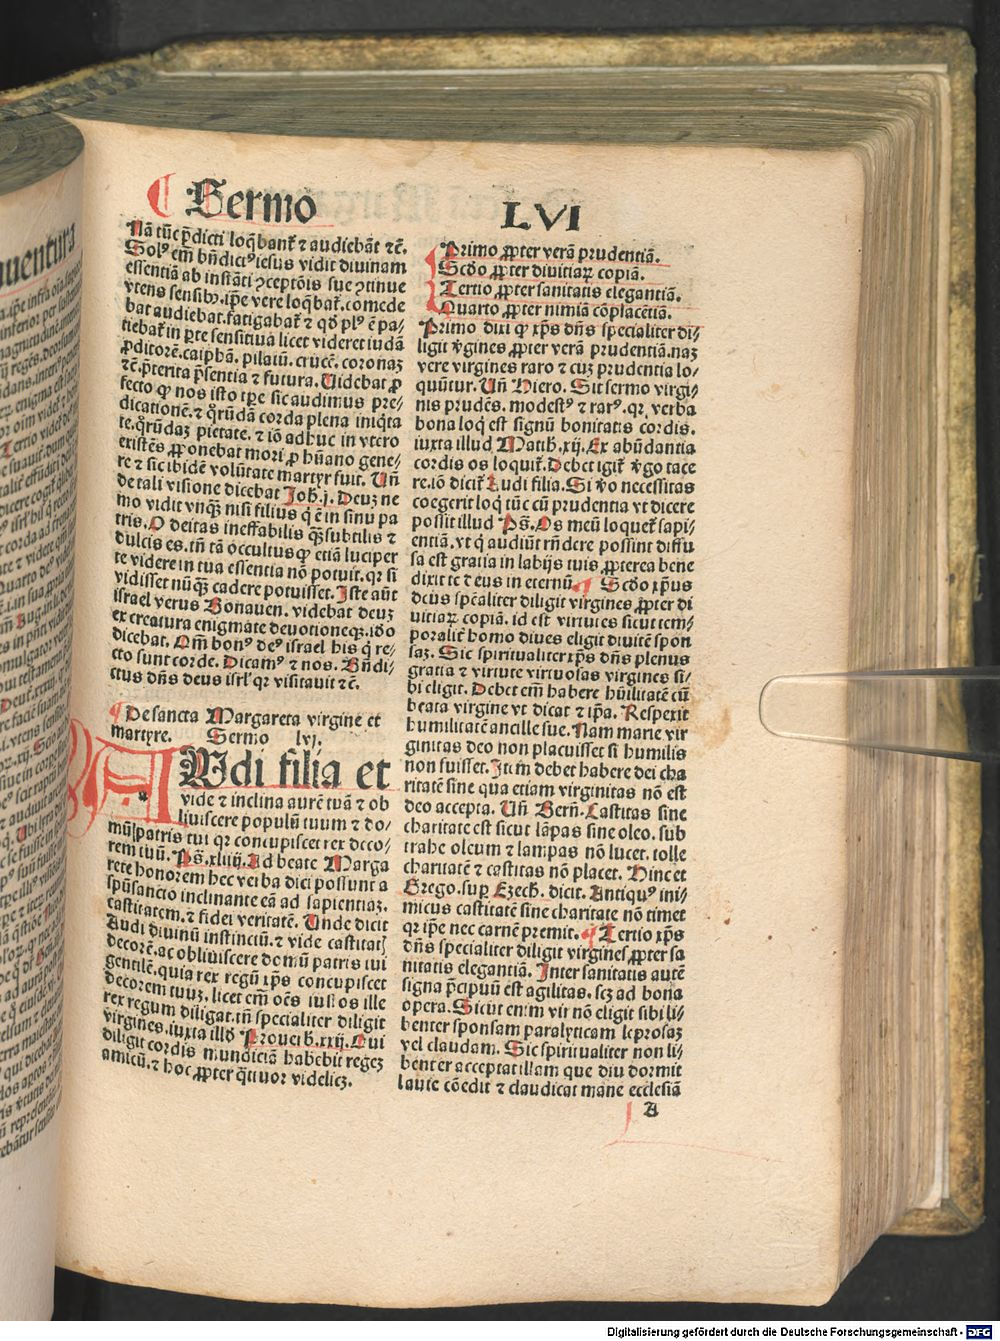 ¶ Sermo LVI
Nã tūc p̄dicti loq̄banť ⁊ audiebāt ⁊c̄.
Solꝰ em̄ bn̄dictꝰ iesus vidit diuinam
essentiā ab instāti ꝯceptōis sue ꝯtinue
vtens sensibꝫ. ip̄e vere loq̄bať. comede
bat audiebat. fatigabať ⁊ qđ plꝰ ē pa⸗
tiebať in ꝑte sensitiua licet videret iudā
ꝓditorē. caipham. pilatū. crucē. coronaꝫ
⁊c̄. p̄terita p̄sentia ⁊ futura. Uidebat ꝓ
fecto ꝙ nos isto tꝑe sic audimus pre⸗
dicationē. ⁊ q̊rūdā corda plena iniq̇ta
te. q̊rūdaꝫ pietate. ⁊ iō adhuc in vtero
existēs ꝓponebat mori ꝓ hūano gene⸗
re ⁊ sic ibidē volūtate martyr fuit. Un̄
de tali visione dicebat Joh̄. j. Deuꝫ ne
mo vidit vnq̄ꝫ nisi filius q̇ ē in sinu pa
tris. O deitas ineffabilis q̄ꝫ subtilis ⁊
dulcis es. tn̄ tā occultus ꝙ etiā luciper
te videre in tua essentia nō potuit. qꝛ si
vidisset nūq̄ꝫ cadere potuisset. Iste aūt
israel verus Bonauen. videbat deuꝫ
ex creatura enigmate deuotioneqꝫ. iđo
dicebat. Qm̄ bonꝰ deꝰ israel his q̇ re⸗
cto sunt corde. Dicamꝰ ⁊ nos. Bn̄di⸗
ctus dn̄s deus isrl̓ qꝛ visitauit ⁊c̄.
¶ De sancta Margareta virgine et
martyre. Sermo lvj.
AUdi filia et
vide ⁊ inclina aurē tuā ⁊ ob
liuiscere populū tuum ⁊ do⸗
mū patris tui qꝛ concupiscet rex deco⸗
rem tuū. Ps̄. xliiij. Ad beate Marga
rete honorem hec verba dici possunt a
spūsancto inclinante eā ad sapientiaꝫ.
castitatem. ⁊ fidei veritatē. Unde dicit
Audi diuinū instinctū. ⁊ vide castitatꝭ
decorē. ac obliuiscere domū patris tui
gentilē. quia rex regū xp̄s concupiscet
decorem tuuꝫ. licet em̄ oēs iustos ille
rex regum diligat. tn̄ specialiter diligit
virgines. iuxta illđ Prouerb. xxij. Qui
diligit cordis mundiciā habebit regeꝫ
amicū. ⁊ hoc ꝓpter q̇ttuor videlicꝫ.
Primo ꝓpter verā prudentiā.
Scđo ꝓpter diuitiaꝝ copiā.
Tertio ꝓpter sanitatis elegantiā.
Quarto ꝓpter nimiā cōplacētiā.
Primo dixi ꝙ xp̄s dn̄s specialiter di⸗
ligit v̓gines ꝓpter verā prudentiā. naꝫ
vere virgines raro ⁊ cuꝫ prudentia lo⸗
quūtur. Un̄ Hiero. Sit sermo virgi⸗
nis prudēs. modestꝰ ⁊ rarꝰ. qꝛ verba
bona loq̇ est signū bonitatis cordis.
iuxta illud Matth. xij. Ex abūdantia
cordis os loquiť. Debet igiť v̓go tace
re. iō diciť Audi filia. Si v̓o necessitas
coegerit loq̇ tūc cū prudentia vt dicere
possit illud Ps̄. Os meū loqueť sapi⸗
entiā. vt q̇ audiūt rn̄dere possint diffu
sa est gratia in labijs tuis ꝓpterea bene
dixit te deus in eternū. ¶ Scđo xp̄us
deus spēaliter diligit virgines ꝓpter di
uitiaꝝ copiā. id est virtutes sicut tem⸗
poralit̓ homo diues eligit diuitē spon
saꝫ. Sic spiritualiter xp̄s dn̄s plenus
gratia ⁊ virtute virtuosas virgines si⸗
bi eligit. Debet em̄ habere hūilitatē cū
beata virgine vt dicat ⁊ ip̄a. Respexit
humilitatē ancille sue. Nam marie vir
ginitas deo non placuisset si humilis
non fuisset. Itm̄ debet habere dei cha
ritatē sine qua etiam virginitas nō est
deo accepta. Un̄ Bern̄. Castitas sine
charitate est sicut lāpas sine oleo. sub
trahe oleum ⁊ lampas nō lucet. tolle
charitatē ⁊ castitas nō placet. Hinc et
Grego. suꝑ Ezech̄. dicit. Antiquꝰ ini⸗
micus castitatē sine charitate nō timet
qꝛ ip̄e nec carnē premit. ¶ Tertio xp̄s
dn̄s specialiter diligit virgines ꝓpter sa
nitatis elegantiā. Inter sanitatis autē
signa p̄cipuū est agilitas. scꝫ ad bona
opera. Sicut enim vir nō eligit sibi li⸗
benter sponsam paralyticam leprosaꝫ
vel claudam. Sic spiritualiter non li⸗
benter acceptat illam que diu dormit
laute cōedit ⁊ claudicat mane ecclesiā
A
Digitalisierung gefördert durch die Deutsche Forschungsgemeinschaft - DFG